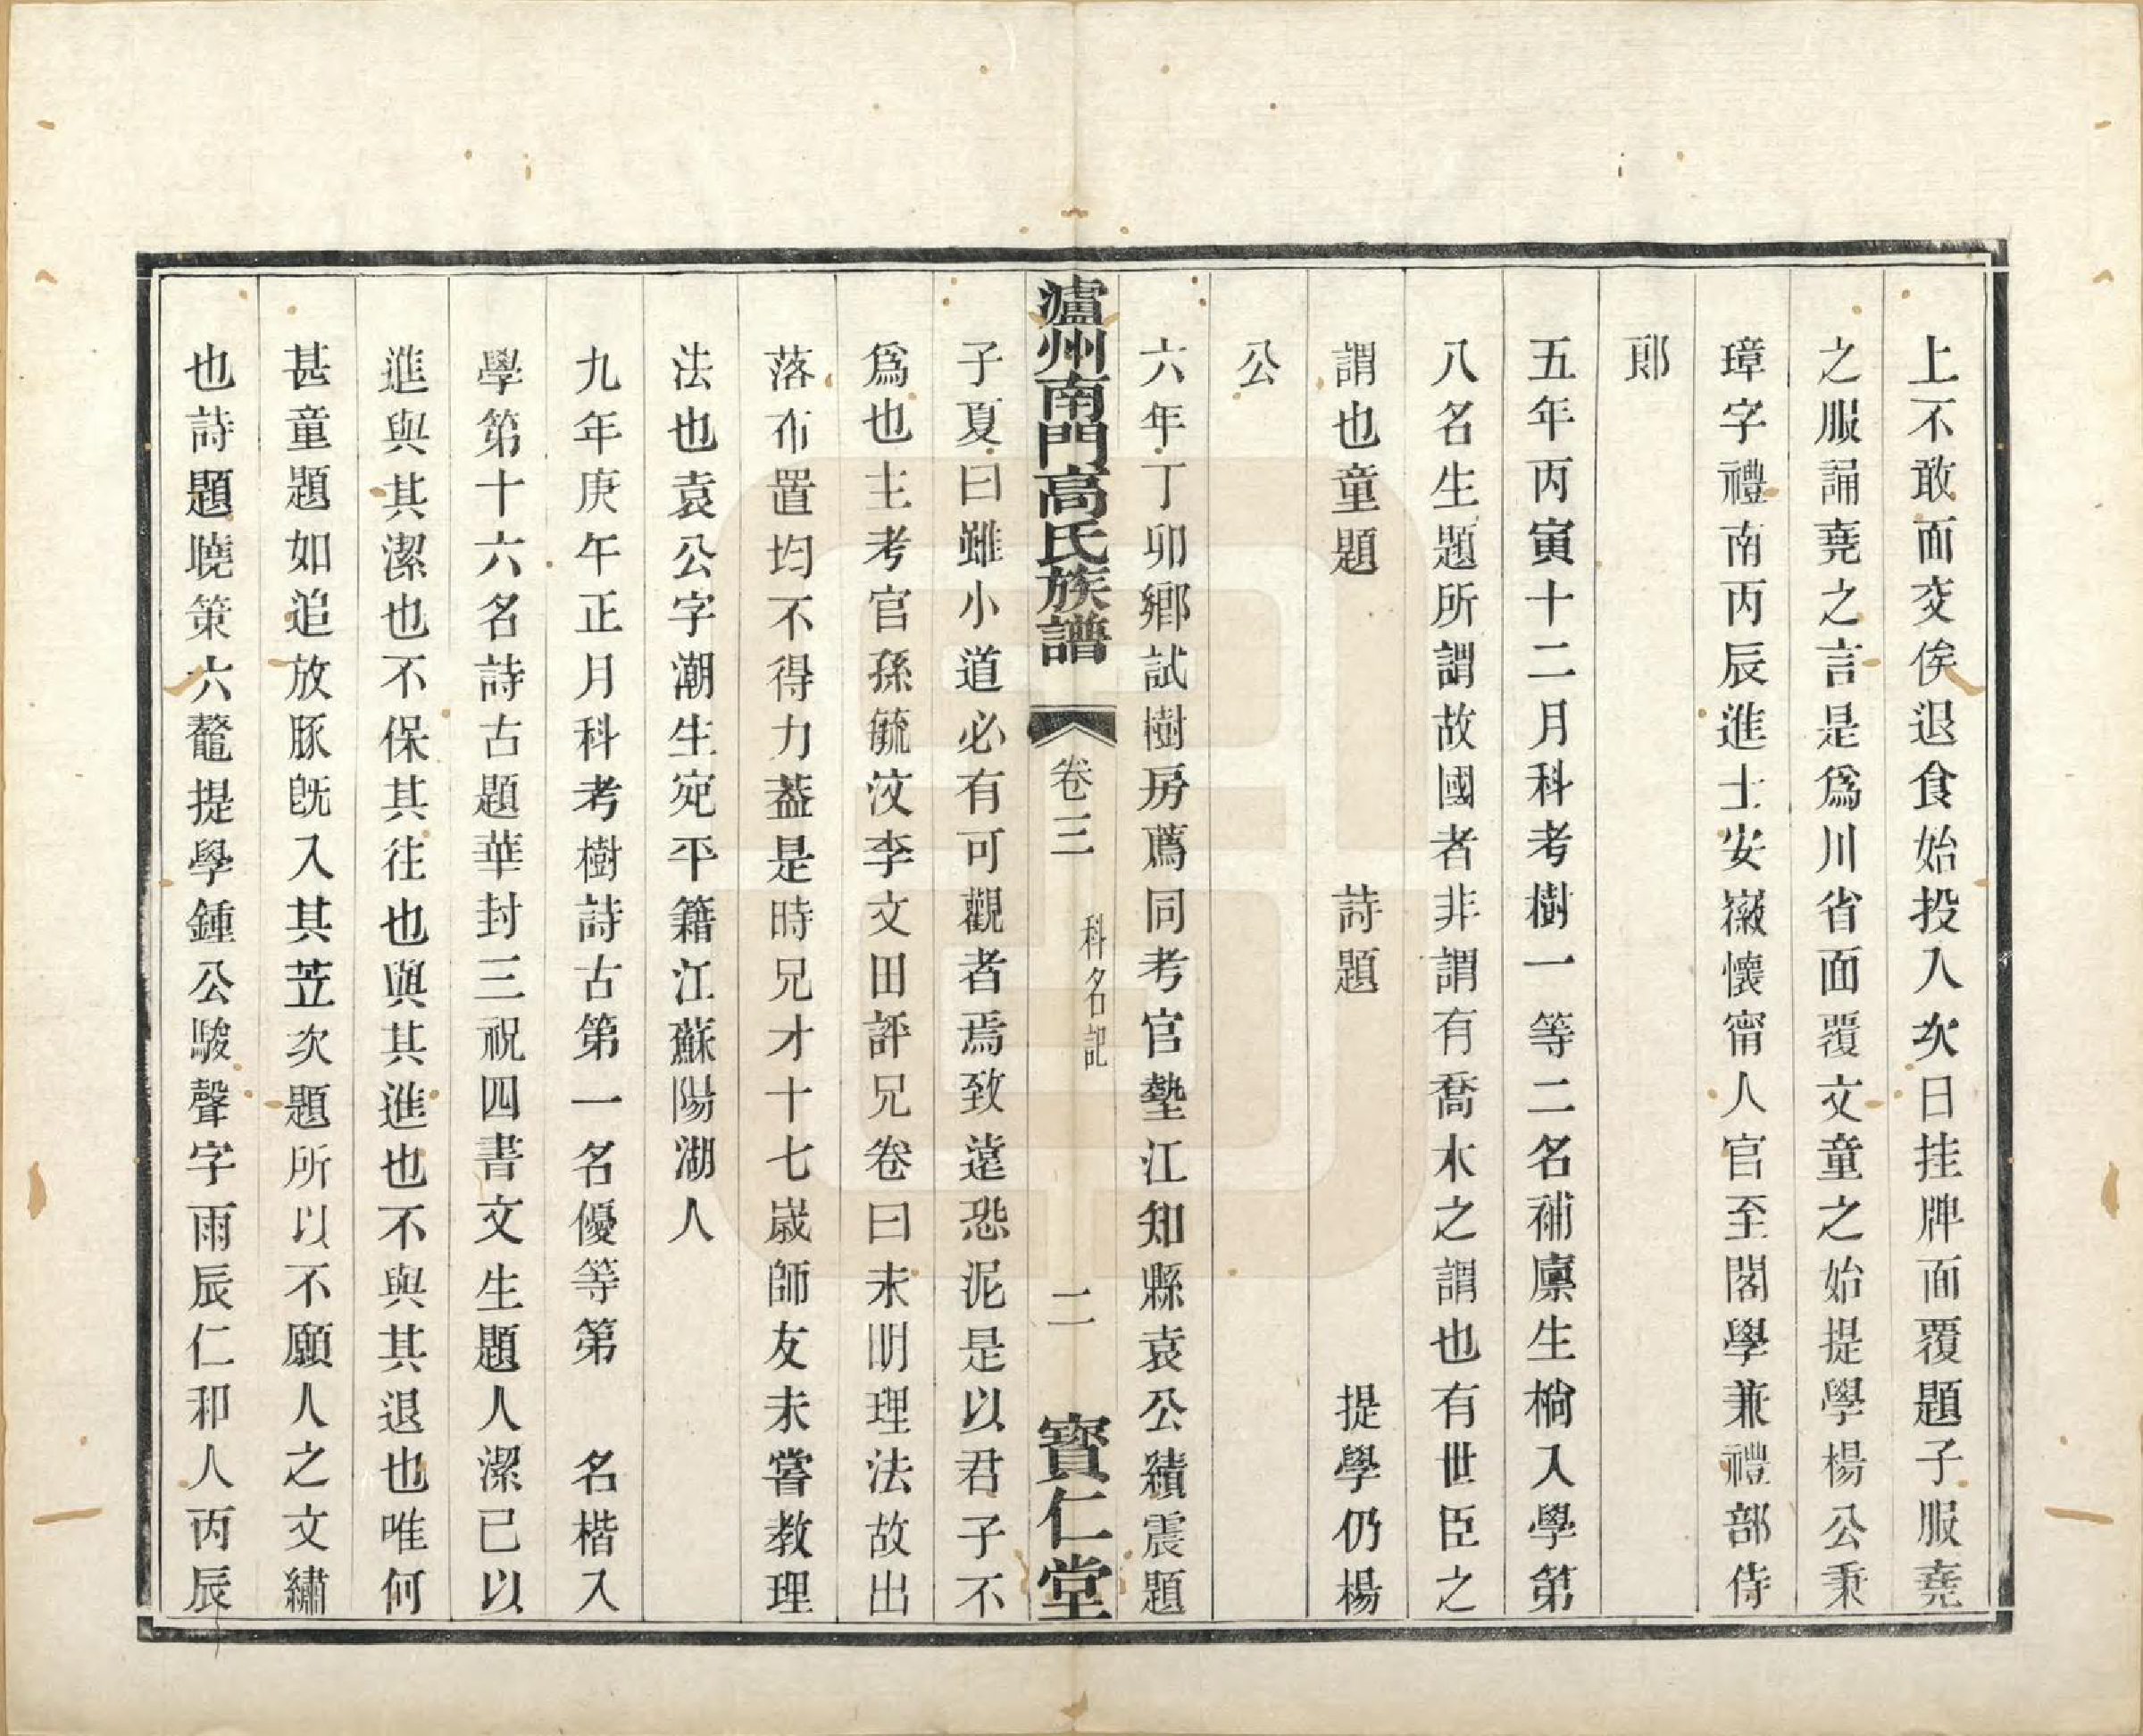 上不敢面交俟退食始投入次日挂牌面覆題子服堯
之服誦堯之言是爲川省面覆文童之始提學楊公秉
璋字禮南丙辰進士安徽懷甯人官至閣學兼禮部侍
郎
五年丙寅十二月科考樹一等二名補廩生樹入學第
八名生題所謂故國者非謂有喬木之謂也有世臣之
謂也童題　　　　　詩題　　　　　　提學仍楊
公
六年丁卯鄉試樹房薦同考官墊江知縣袁公績震題
瀘州南門高氏族譜　卷三　科名記　二　寳仁堂
子夏曰雖小道必有可觀者焉致遠恐泥是以君子不
爲也主考官孫毓汶李文田評兄卷曰未明理法故出
落布置均不得力葢是時兄才十七嵗師友未嘗教理
法也袁公字潮生宛平籍江蘇陽湖人
九年庚午正月科考樹詩古第一名優等第　名楷入
學第十六名詩古題華封三祝四書文生題人潔已以
進與其潔也不保其往也與其進也不與其退也唯何
甚童題如追放豚旣入其苙次題所以不願人之文繡
也詩題曉策六鼇提學鍾公駿聲字雨辰仁和人丙辰